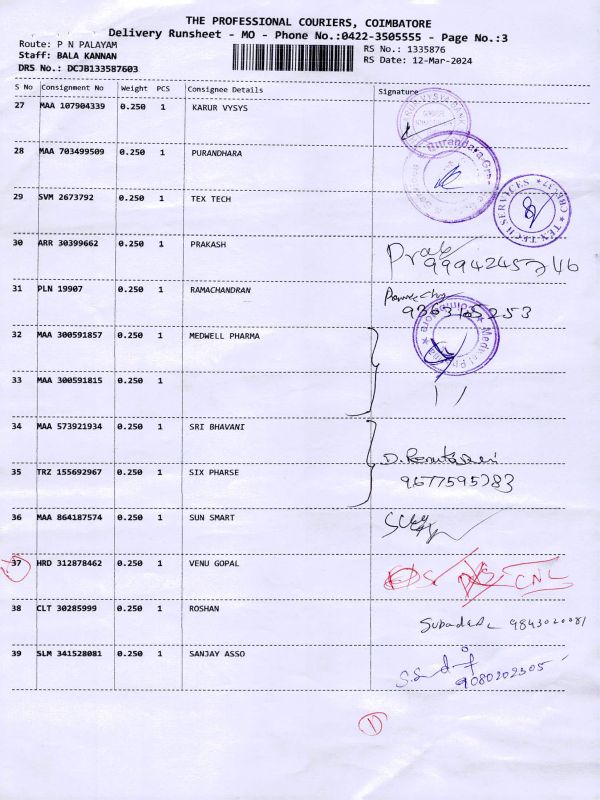 THE PROFESSIONAL COURIERS, COIMBATORE
Delivery Runsheet - MO - Phone No.:0422-3505555 - Page No.:3
Route: P N PALAYAM
RS No.: 1335876
Staff: BALA KANNAN
RS Date: 12-Mar-2024
DRS No.: DCJB133587603
S No Consignment No Weight PCS Consignee Details Signature
27 MAA 107904339 0.250 1 KARUR VYSYS
28 MAA 703499509 0.250 1 PURANDHARA
29 SVM 2673792 0.250 1 TEX TECH
TEX-TECH SERVICES
30 ARR 30399662 0.250 1 PRAKASH
31 PLN 19907 0.250 1 RAMACHANDRAN
32 MAA 300591857 0.250 1 MEDWELL PHARMA
33 MAA 300591815 0.250 1
34 MAA 573921934 0.250 1 SRI BHAVANI
35 TRZ 155692967 0.250 1 SIX PHARSE
9677595783
36 MAA 864187574 0.250 1 SUN SMART
37 HRD 312878462 0.250 1 VENU GOPAL
CNL
38 CLT 30285999 0.250 1 ROSHAN
39 SLM 341528081 0.250 1 SANJAY ASSO
9080202305
1